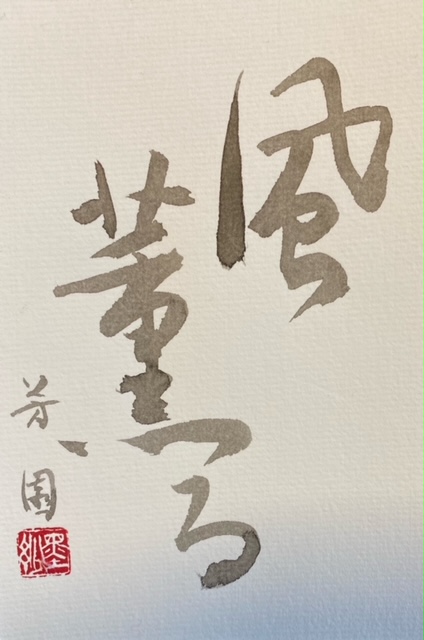 風
薫る
芳園